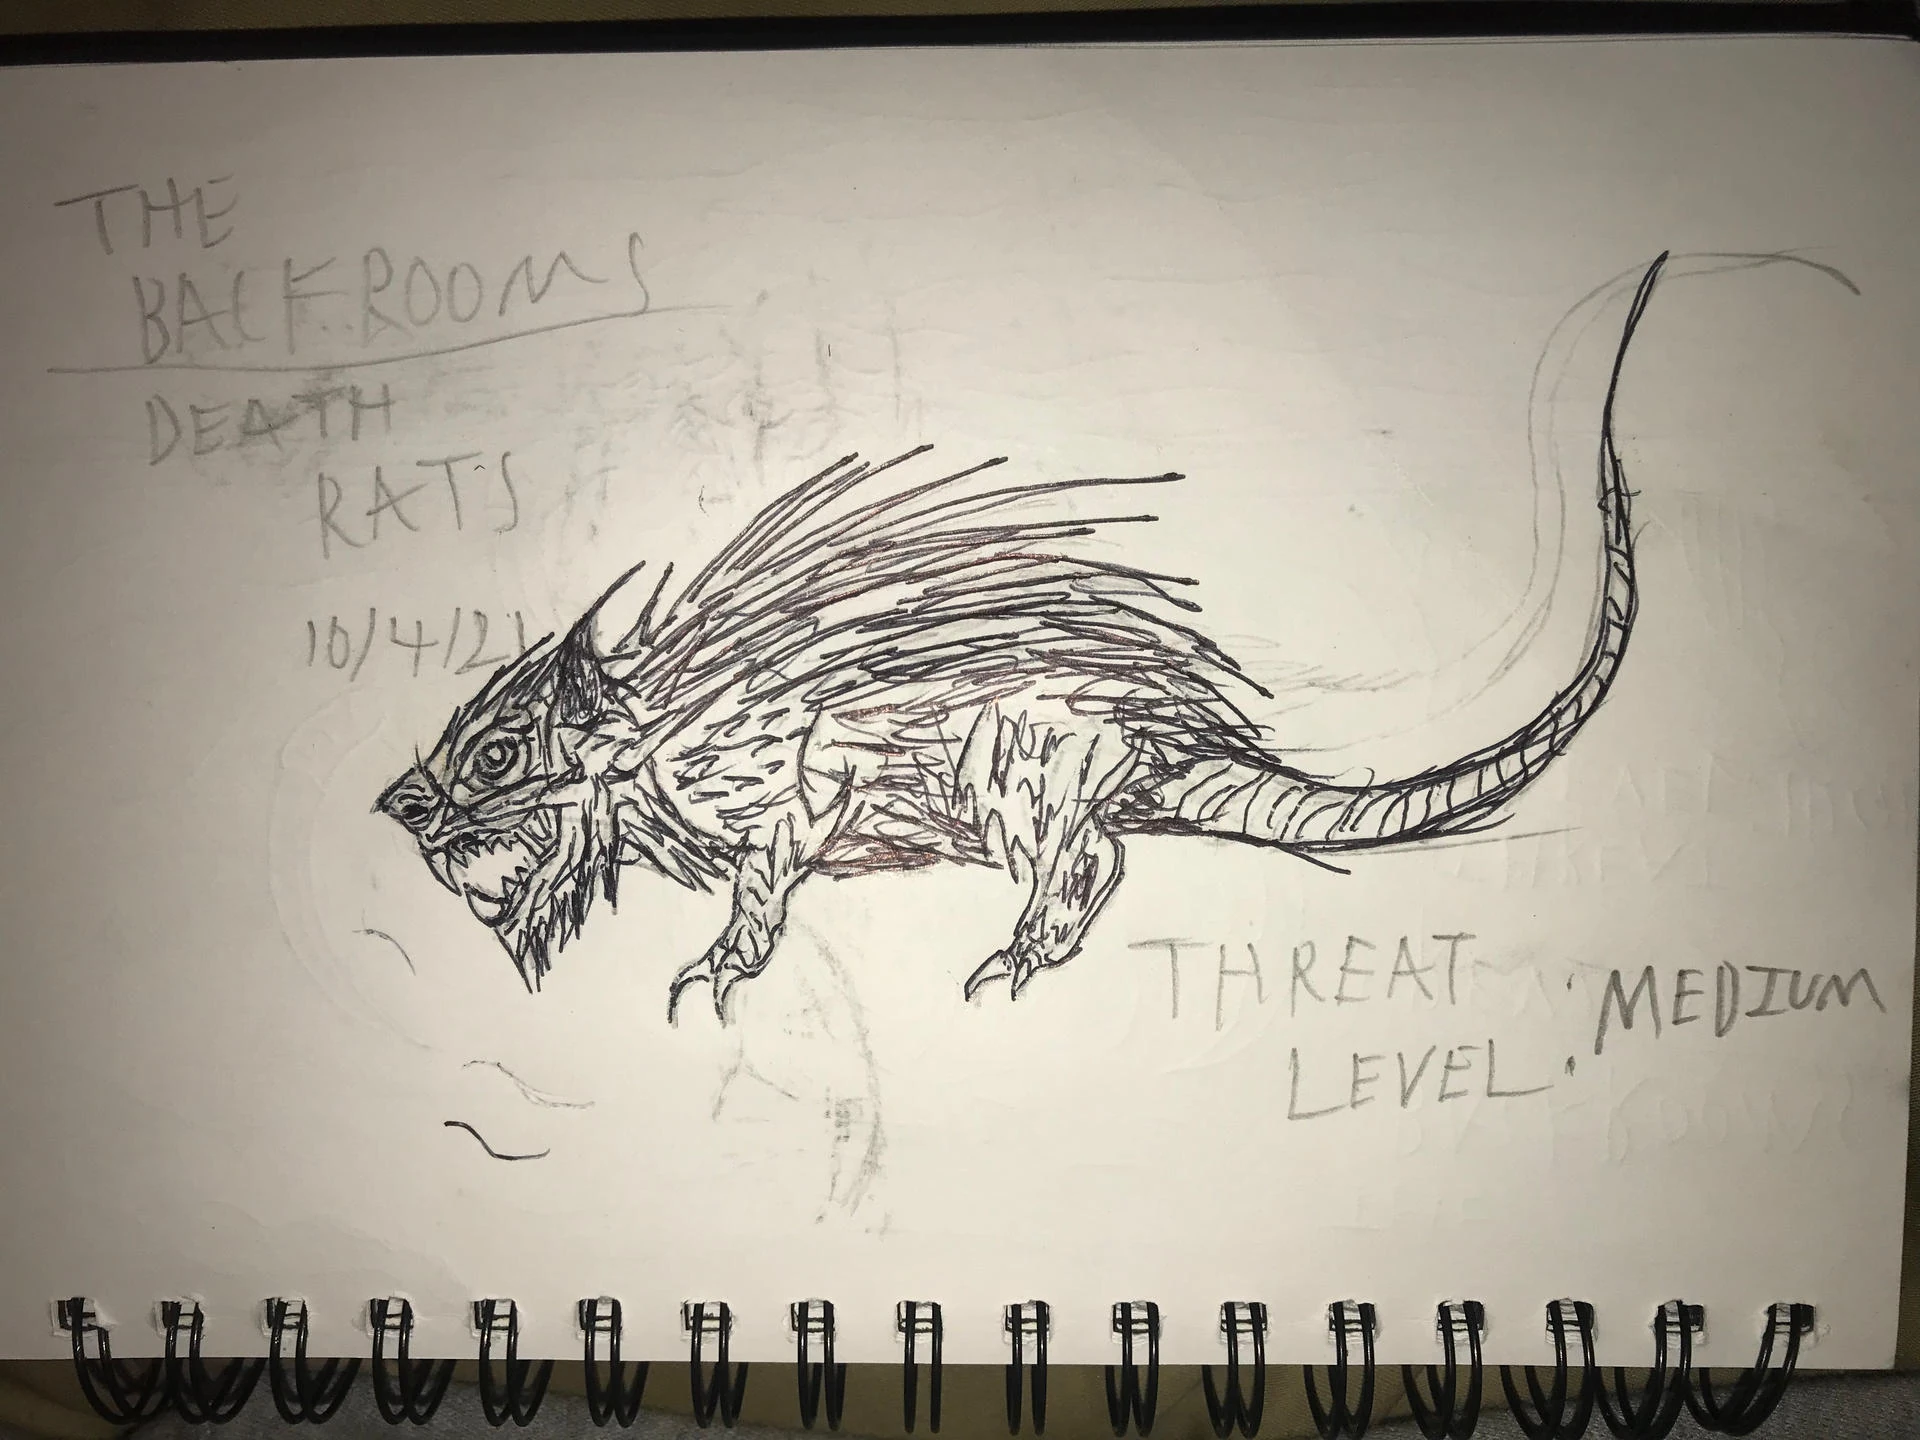 THE
BACKROOMS
DEATH
RATS
10/4/21
THREAT
LEVEL : MEDIUM